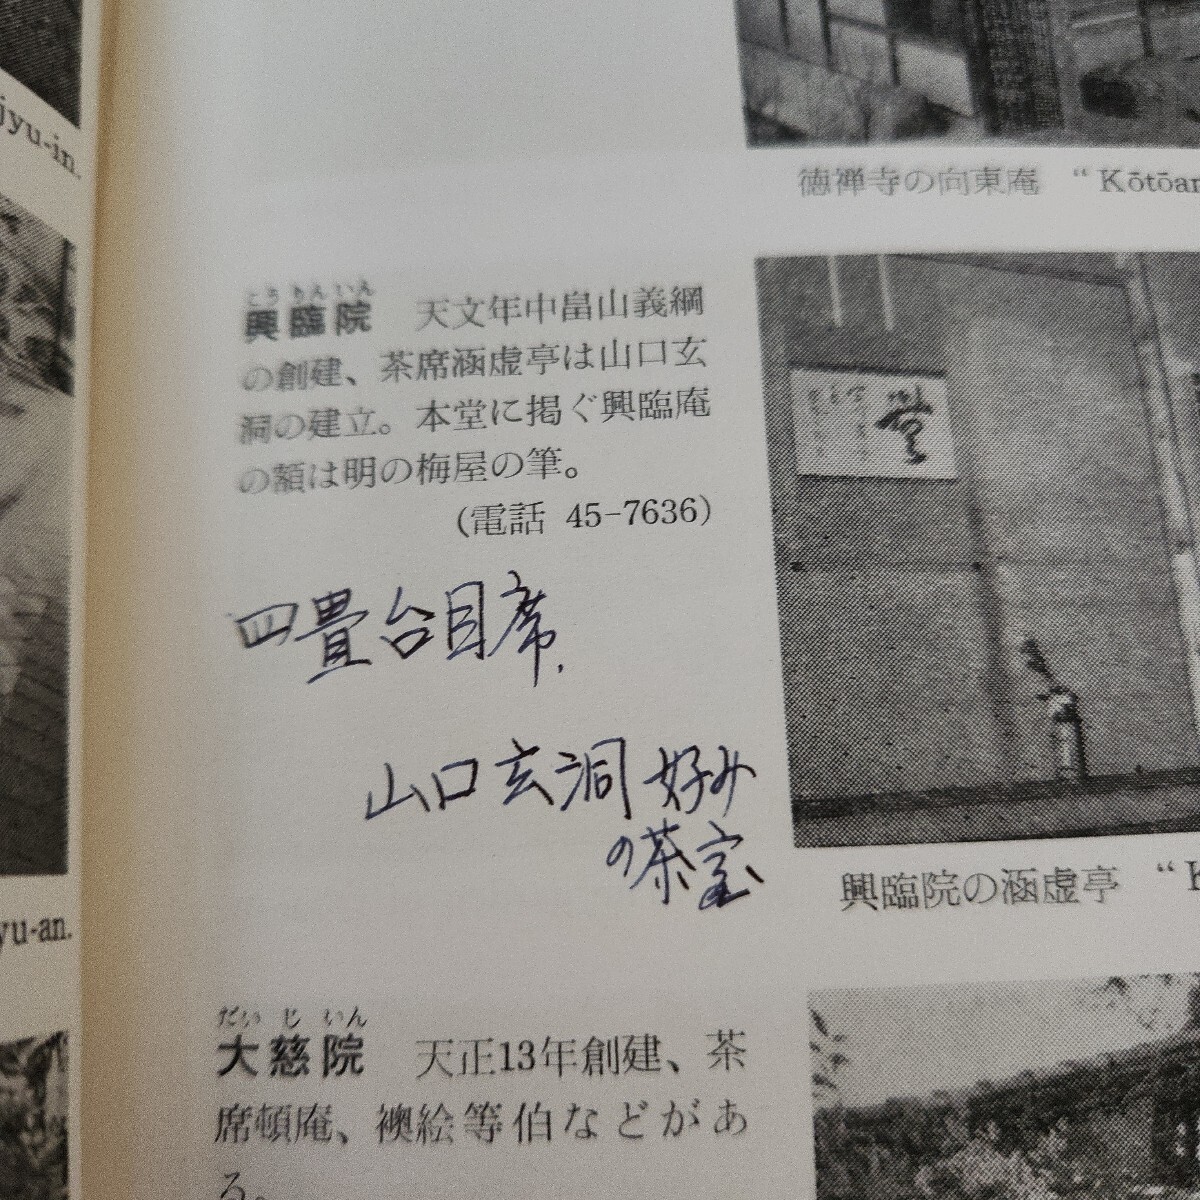 jyu-in.
yu-an.
徳禅寺の向東庵 “Kōtōan
こうりんいん
興臨院 天文年中畠山義綱
の創建、茶席涵虚亭は山口玄
洞の建立。本堂に掲ぐ興臨庵
の額は明の梅屋の筆。
(電話 45-7636)
四畳台目席.
山口玄洞好み
の茶室
興臨院の涵虚亭 “K
だいじいん
大慈院 天正13年創建、茶
席頓庵、襖絵等伯などがあ
る。